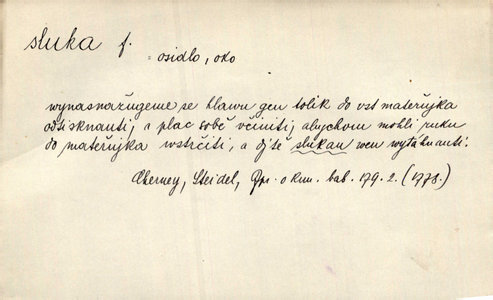 sluka f.
= osidlo, oko
wynasnažugeme se hlawu gen tolik do vst mateřňjka
odtisknauti, a plac sobě včiniti, abychom mohli ruku
do mateřňjka wstrčiti, a djtě slukau wen wytáhnauti.
Cherney, Steidel, Zpr. o kun. bab. 179. 2. (1778.)